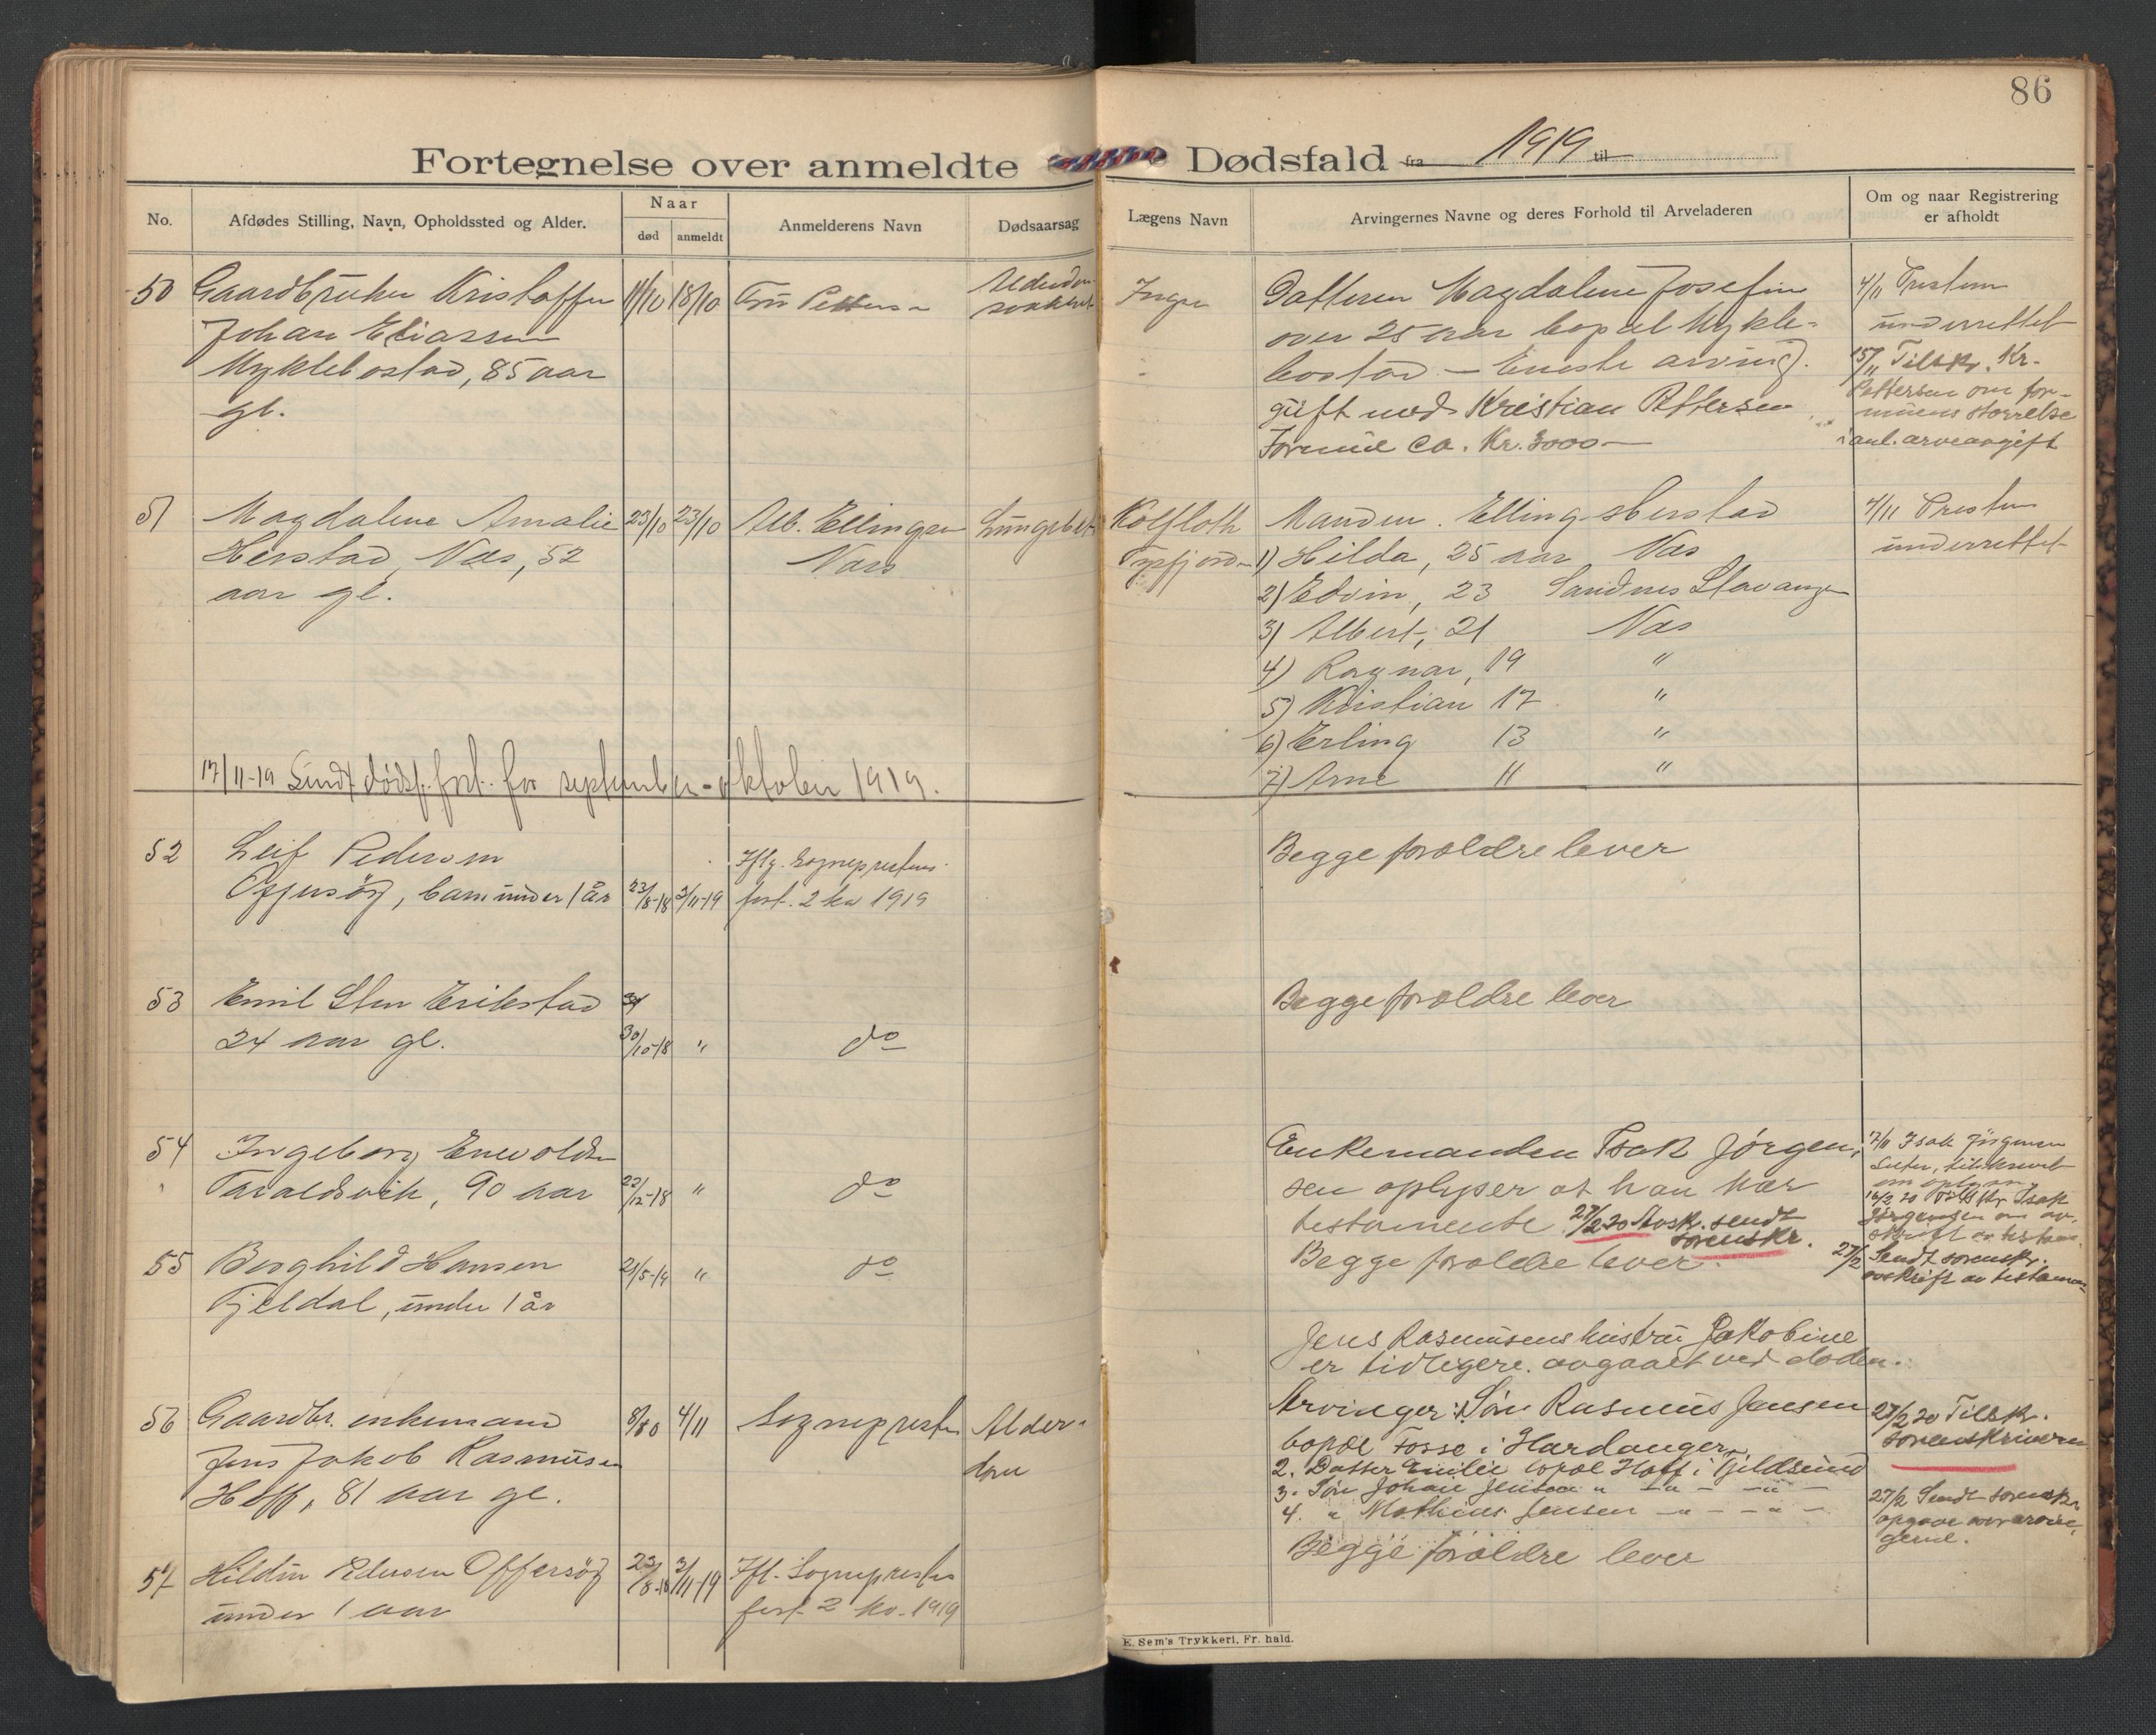 86
Fortegnelse over anmeldte Dødsfald fra 1919 til
No.
Afdødes Stilling, Navn, Opholdssted og Alder.
Naar
død
anmeldt
Anmelderens Navn
Dødsaarsag
Lægens Navn
Arvingernes Navne og deres Forhold til Arveladeren
Om og naar Registrering
er afholdt
50
Gaardbruker Kristoffer
Johan Eliassen
Myklebostad, 85 aar
gl.
11/10
18/10
Alderdoms
svakhet
Inger
Datteren Magdalene Josefine
over 25 aar bopæl Mykle-
bostad – Eneste arving.
gift med Kristian Pettersen
Formue ca. Kr. 3000 —
4/11 Presten
underrettet
15/11 Tilskr. Kr.
Pettersen om for-
muens størrelse
i anl. arveavgift
51
Magdalene Amalie
Herstad, Næs, 52
aar gl.
23/10
23/10
Alb. Ellingsen
Næs
Lungebet.
Kolfloth
Tysfjorden
Manden. Elling Herstad
1) Hilda, 25 aar Næs
2) Edvin, 23 Sandnes Stavanger
3) Albert, 21 Næs
4) Ragnar, 19 "
5) Kristian 17 "
6) Erling 13 "
7) Arne 11 "
4/11 Presten
underrettet
17/11-19 Sendt dødsf. fort. for september-oktober 1919.
52
Leif Pedersen
Offersøy, barn under 1 år
23/8-18
3/11-19
Iflg. Sogneprestens
fort. 2 kv 1919
Begge forældre lever
53
Emil Sten Erikstad
24 aar gl.
30/10-18
"
do
Begge forældre lever
54
Ingeborg Enevoldsen
Taraldsvik, 90 aar
22/12-18
"
do
Enkemanden Isak Jørgen-
sen oplyser at han har
testamente 27/2 20 Avsk. sendt
sorenskr.
7/11 Isak Jørgensen
Seter, tilskrevet
om oplysn.
16/2 20 Tilskr. Isak
Jørgensen om av-
skrift av testam.
27/2 Sendt sorenskr.
avskrift av testamen-
55
Borghild Hansen
Fjeldal, under 1 år
21/5-19
"
do
Begge forældre lever.
Jens Rasmusens hustru Jakobine
er tidligere avgaaet ved døden.
56
Gaardbr. enkemand
Jens Jakob Rasmusen
Hoff, 81 aar gl.
8/10
4/11
Sognepresten
Alder-
dom
Arvinger: 1. Søn Rasmus Jensen
bopæl Fosse i Hardanger
2. Datter Emilie bopæl Hoff i Kjeldsund
3. Søn Johan Jensen " — " — " —
4. " Mathius Jensen — " — — " —
27/2 20 Tilskr.
sorenskriveren
27/2 Sendt sorenskr.
opgave over arvin-
gerne.
57
Hildur Pedersen Offersøy
under 1 aar
23/8-18
3/11-19
Ifl. Sogneprestens
fort. 2 kv. 1919
Begge forældre lever
E. Sem's Trykkeri, Fr. hald.